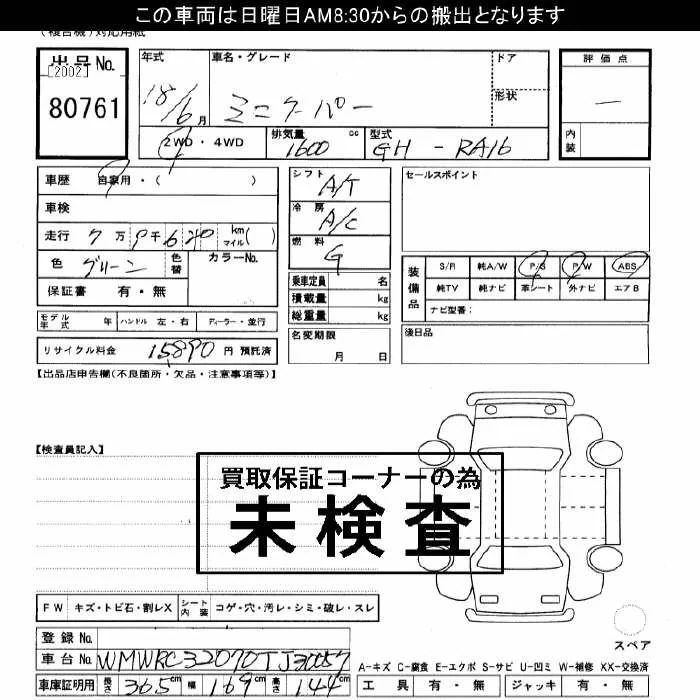 この車両は日曜日AM8:30からの搬出となります
(複合機)対応用紙
出品No.
[2002]
80761
年式
18/6月
車名・グレード
ミニクーパー
ドア
形状
評価点
―
内装
2WD・4WD
排気量 1600 cc
型式 GH - RA16
車歴 自家用・( )
車検
走行 7万 9千 6 20 km マイル( )
色 グリーン 色替 カラーNo.
保証書 有・無
シフト A/T
冷房 A/C
燃料 G
乗車定員 名
積載量 kg
総重量 kg
名変期限
月 日
セールスポイント
装備品
S/R 純A/W P/S P/W ABS
純TV 純ナビ 革シート 外ナビ エアB
ナビ型番:
後日品
モデル年式 年 ハンドル 左・右 ディーラー・並行
リサイクル料金 15890 円 預託済
【出品店申告欄(不良箇所・欠品・注意事項等)】
【検査員記入】
買取保証コーナーの為
未検査
FW キズ・トビ石・割レX シート内装 コゲ・穴・汚レ・シミ・破レ・スレ
スペア
登録No.
車台No. WMWRC32070TJ30057
車庫証明用 長さ 365cm 幅 169cm 高さ 144cm
A-キズ C-腐食 E-エクボ S-サビ U-凹ミ W-補修 XX-交換済
工具 有・無 ジャッキ 有・無